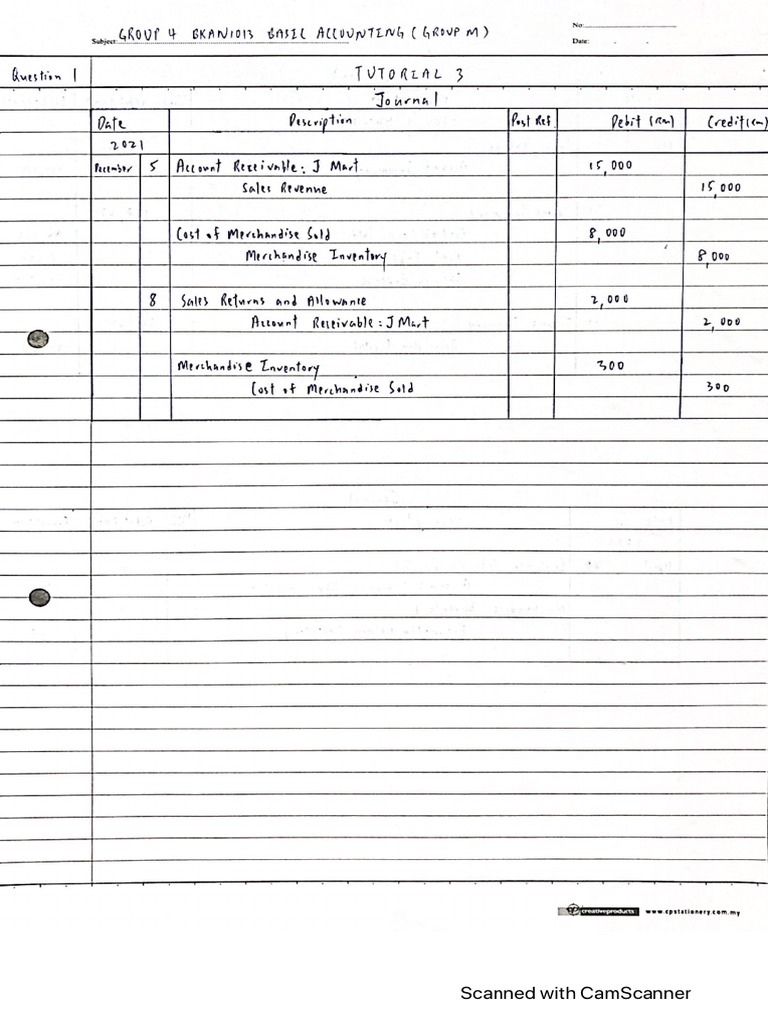 No:
Subject: GROUP 4 BKAN1013 BASIC ACCOUNTING (GROUP M)
Date:
Question 1 TUTORIAL 3
Journal
Date Description Post Ref Debit (RM) Credit (RM)
2021
December 5 Account Receivable: J Mart 15,000
Sales Revenue 15,000
Cost of Merchandise Sold 8,000
Merchandise Inventory 8,000
8 Sales Returns and Allowance 2,000
Account Receivable: J Mart 2,000
Merchandise Inventory 300
Cost of Merchandise Sold 300
cp creativeproducts www.cpstationery.com.my
Scanned with CamScanner